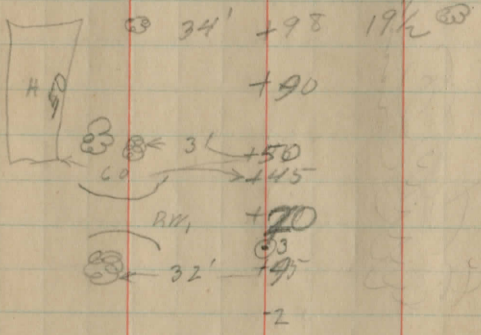 34' +98 19½
H +90
3' +50
60' +45
RM, +20
3
32' +95
2